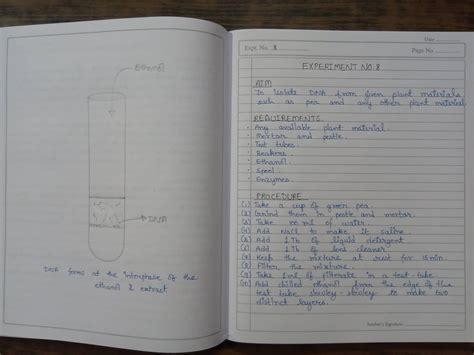 Ethanol
DNA
DNA forms at the interphase of the
ethanol & extract
Date
Expt. No. 8
Page No.
EXPERIMENT NO. 8
AIM
To isolate DNA from given plant materials
such as pea and any other plant material
REQUIREMENTS
• Any available plant material
• Mortar and pestle.
• Test tubes.
• Beakers.
• Ethanol
• Spool
• Enzymes.
PROCEDURE
(1) Take a cup of green pea.
(2) Grind them in pestle and mortar.
(3) Take 100 ml of water.
(4) Add NaCl to make it saline.
(5) Add 1 Tb of liquid detergent
(6) Add 1 Tb of lens cleaner.
(7) Keep the mixture at rest for 15 min.
(8) Filter the mixture.
(9) Take 1 ml of filterate in a test-tube.
(10) Add chilled ethanol from the edge of the
test tube slowley slowley to make two
distinct layers.
Teacher's Signature